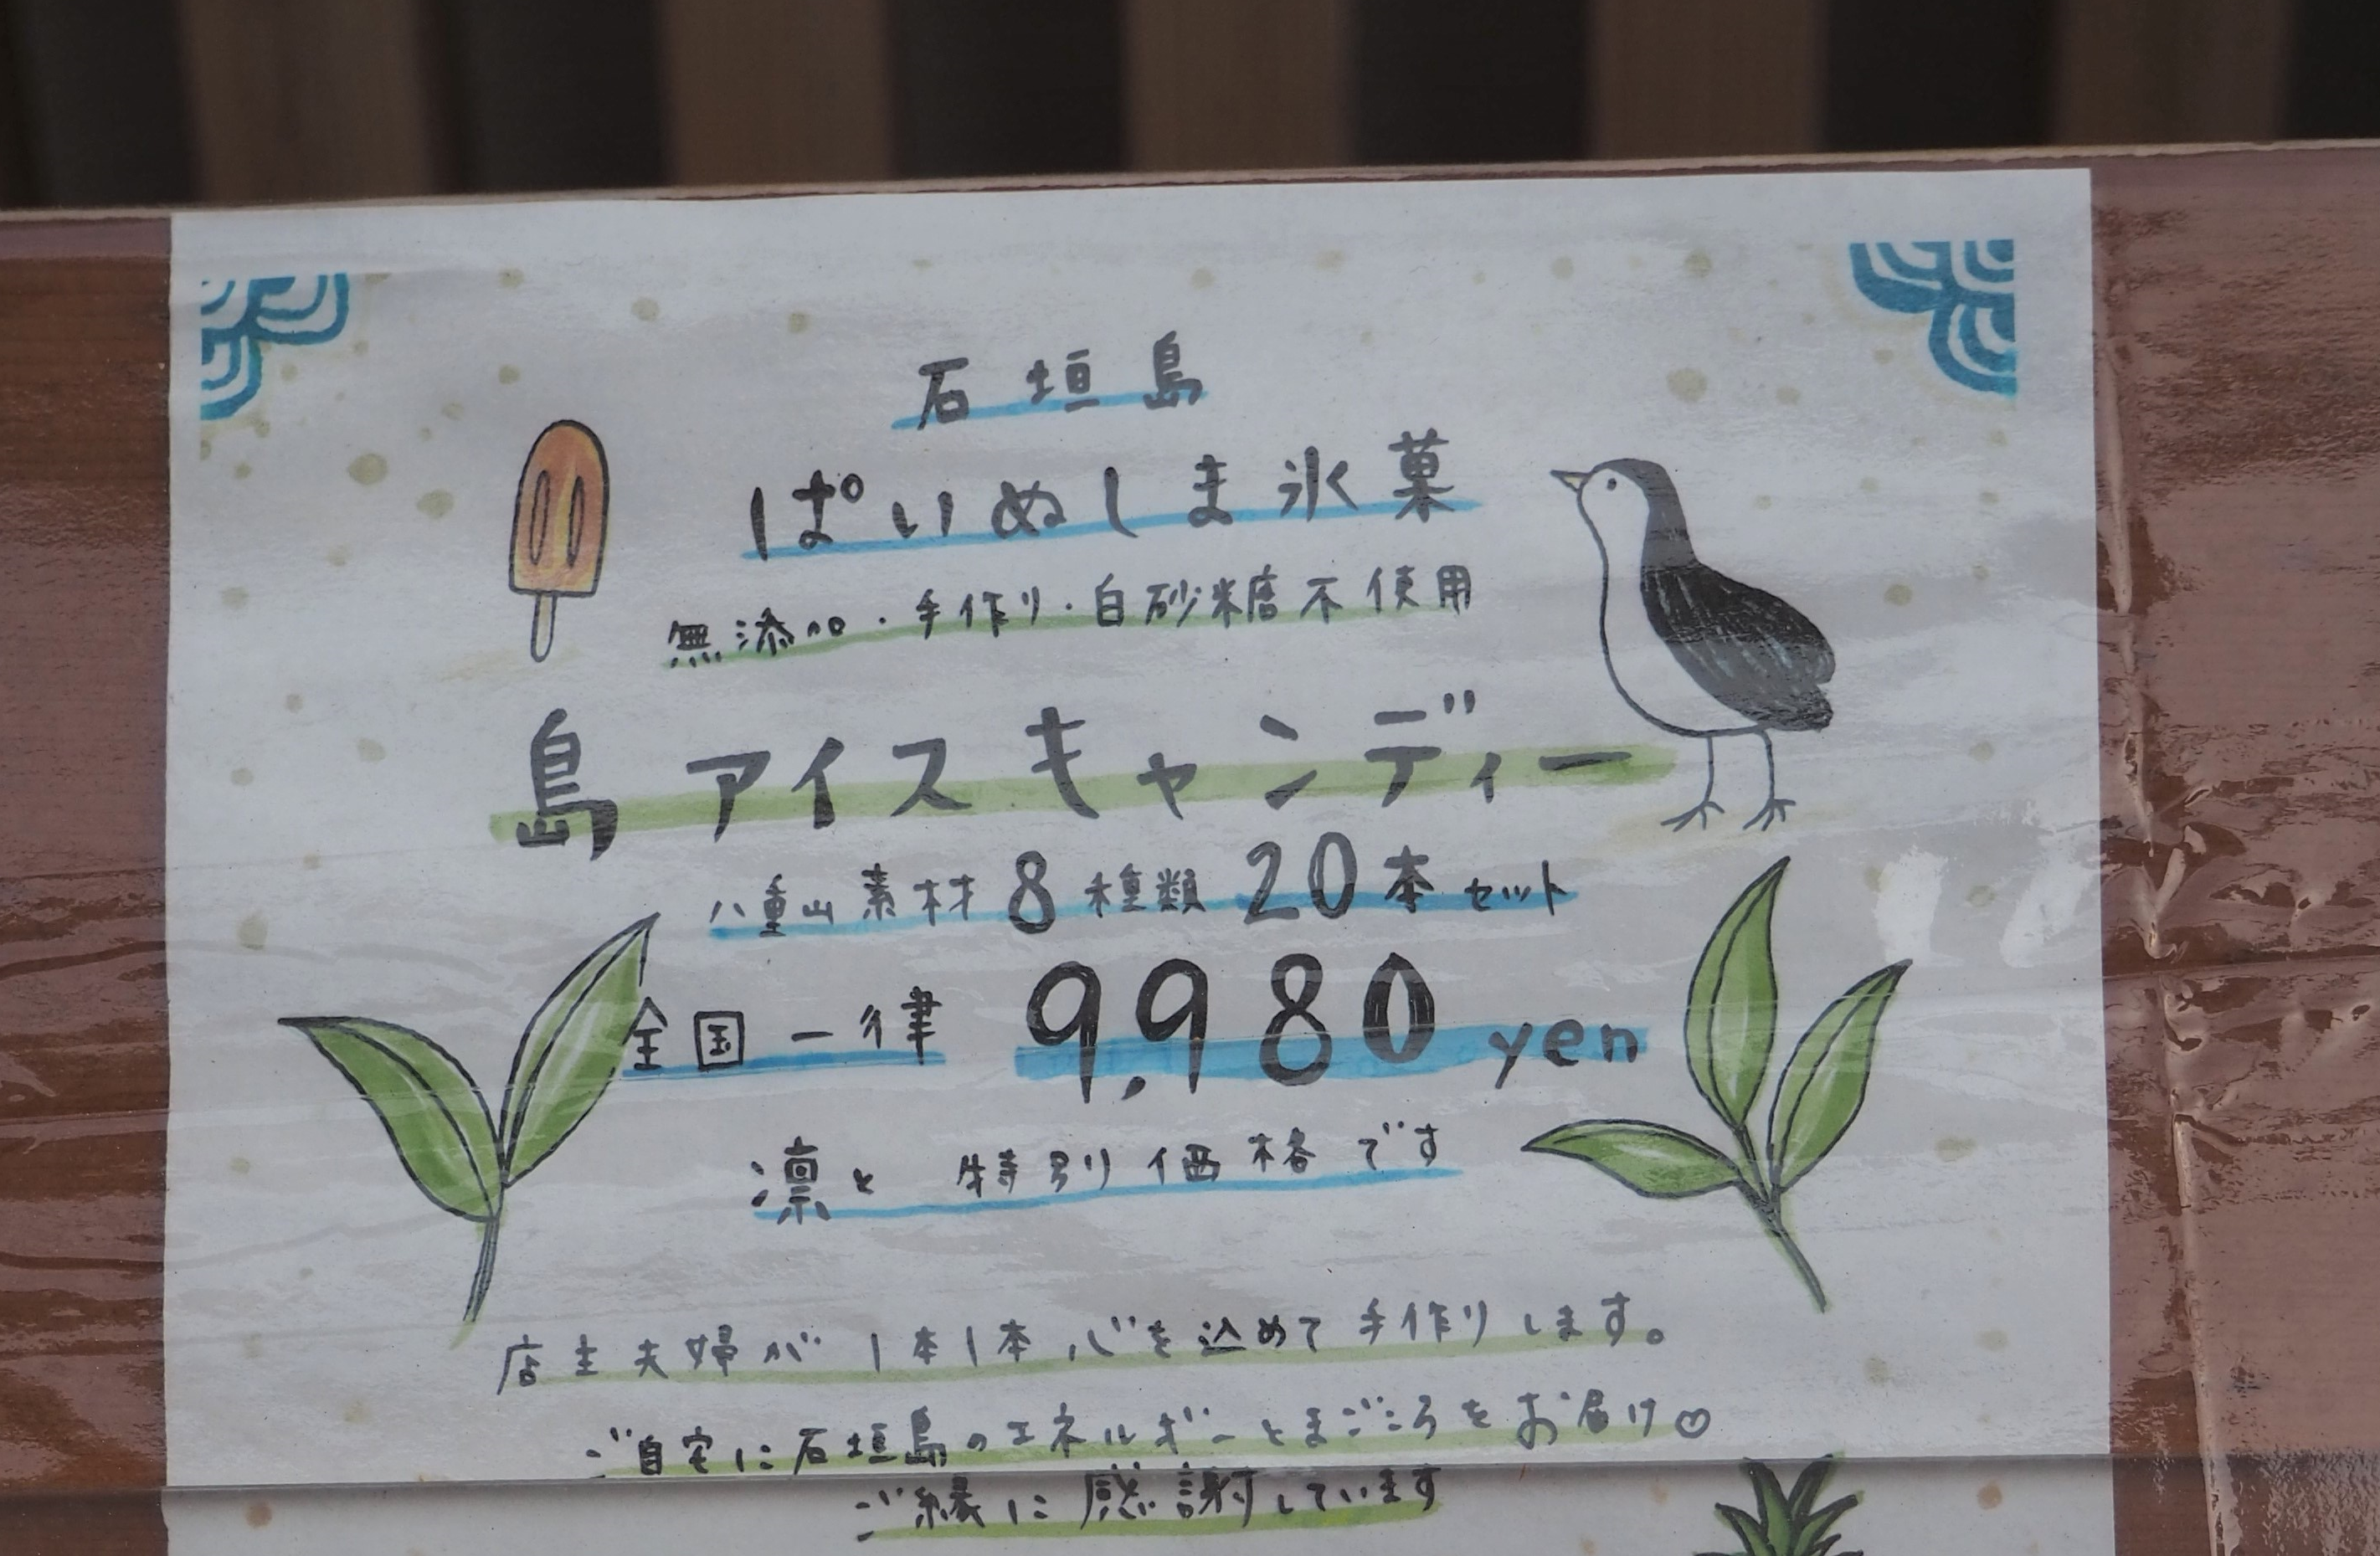 石垣島
ぱいぬしま氷菓
無添加・手作り・白砂糖不使用
島アイスキャンディー
八重山素材8種類20本セット
全国一律 9,980 yen
凛と 特別価格です
店主夫婦が1本1本心を込めて手作りします。
ご自宅に石垣島のエネルギーとまごころをお届け♡
ご縁に感謝しています